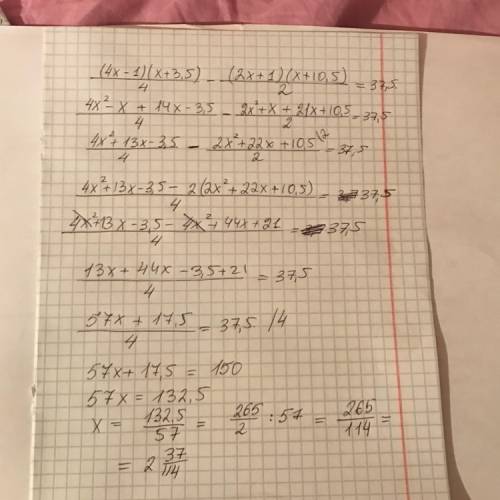 (4x-1)(x+3,5)/4 - (2x+1)(x+10,5)/2 = 37,5
4x²-x+14x-3,5/4 - 2x²+x+21x+10,5/2 = 37,5
4x²+13x-3,5/4 - 2x²+22x+10,5/2 \2 = 37,5
4x²+13x-3,5-2(2x²+22x+10,5)/4 = 37,5
4x²+13x-3,5-4x²+44x+21/4 = 37,5
13x+44x-3,5+21/4 = 37,5
57x+17,5/4 = 37,5 /4
57x+17,5 = 150
57x = 132,5
x = 132,5/57 = 265/2 : 57 = 265/114 =
= 2 37/114